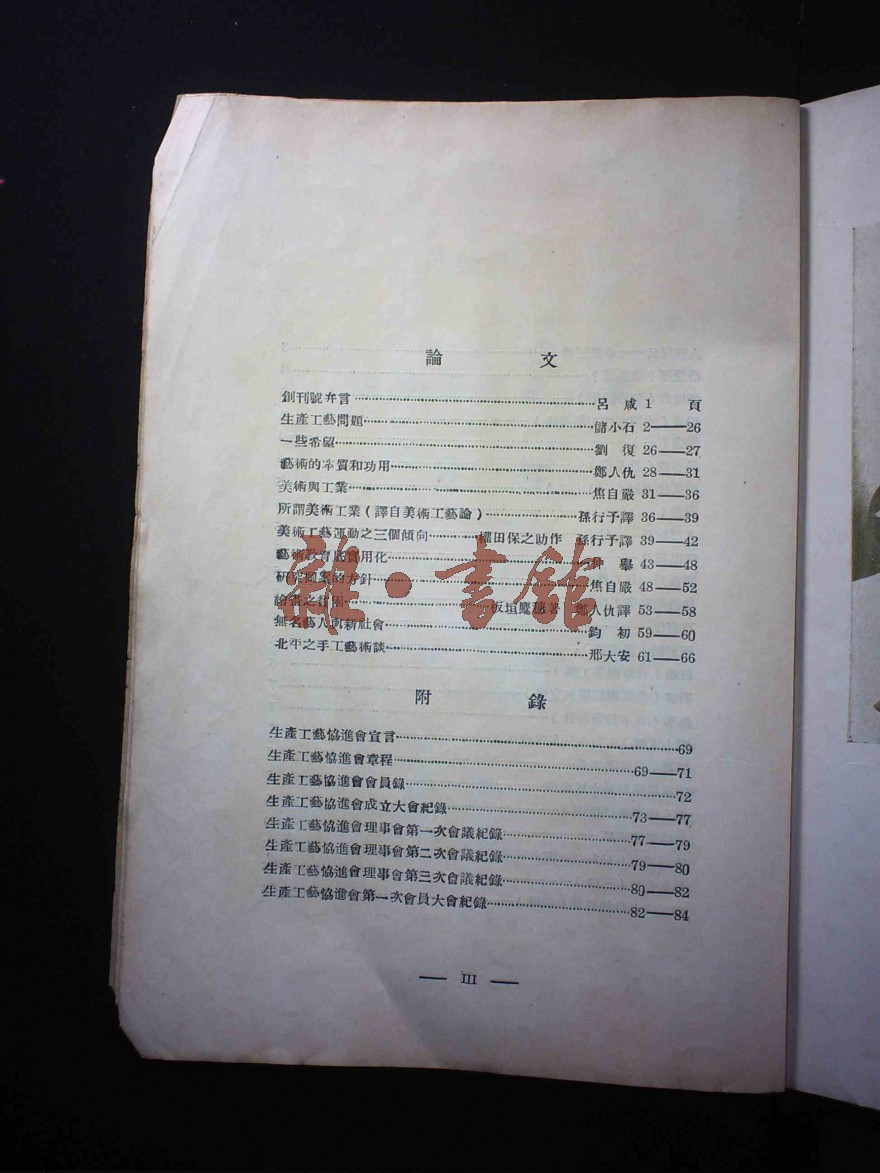 論 文
創刊號弁言……呂 咸 1 頁
生產工藝問題……儲小石 2——26
一些希望……劉 復 26——27
藝術的本質和功用……鄭人仇 28——31
美術與工業……焦自嚴 31——36
所謂美術工業(譯自美術工藝論)……孫行予譯 36——39
美術工藝運動之三個傾向……權田保之助作 孫行予譯 39——42
藝術教育底實用化……仲 擧 43——48
研究圖案的方針……焦自嚴 48——52
論畫之……板垣鷹穗著 鄭人仇譯 53——58
無名藝人與新社會……鈞 初 59——60
北平之手工藝術談……邢大安 61——66
附 錄
生產工藝協進會宣言……69
生產工藝協進會章程……69——71
生產工藝協進會會員錄……72
生產工藝協進會成立大會紀錄……73——77
生產工藝協進會理事會第一次會議紀錄……77——79
生產工藝協進會理事會第二次會議紀錄……79——80
生產工藝協進會理事會第三次會議紀錄……80——82
生產工藝協進會第一次會員大會紀錄……82——84
— III —
雜·書館